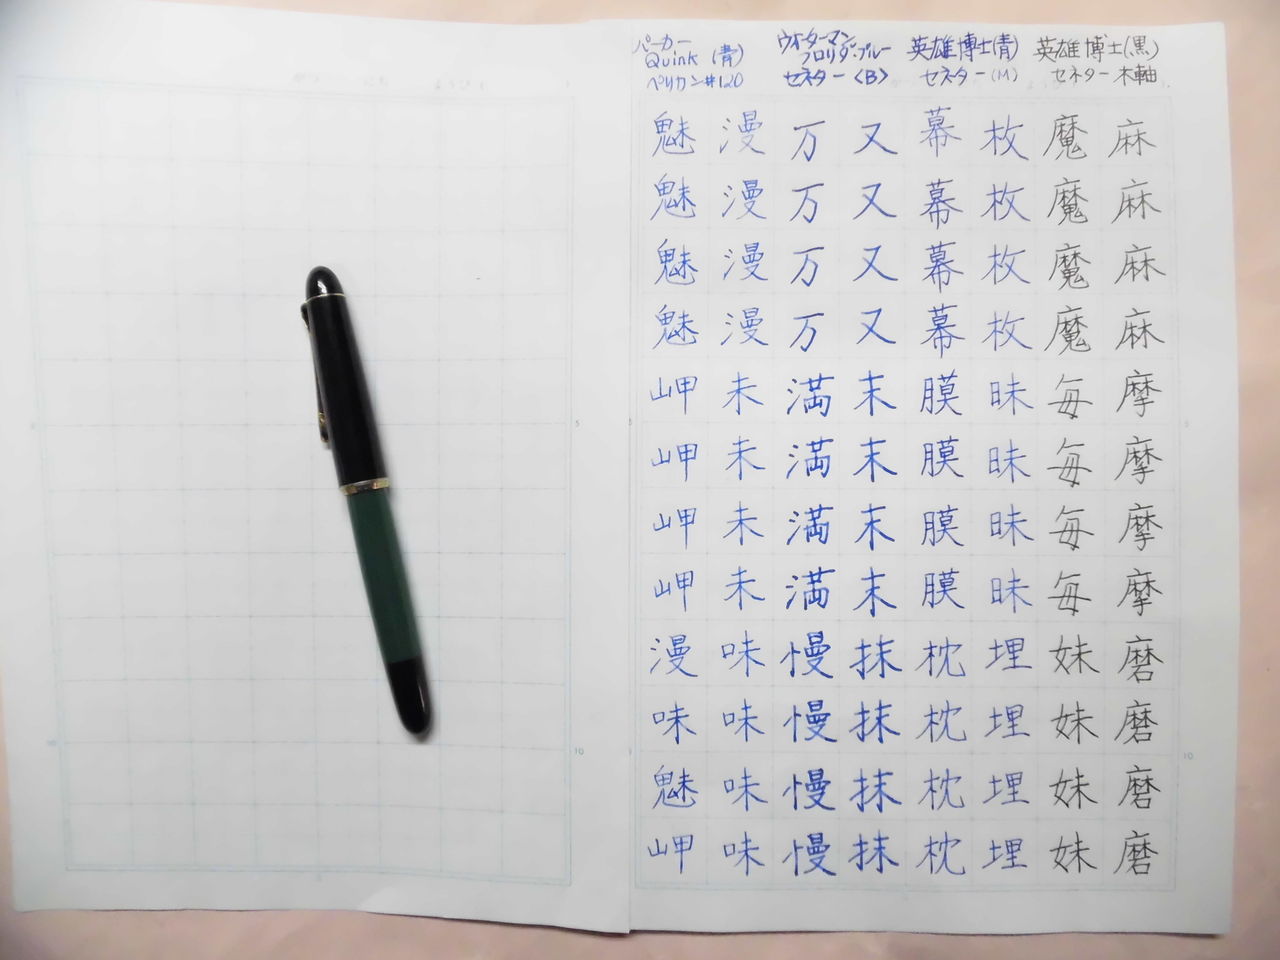 パーカー
Quink (青)
ペリカン#120
ウォーターマン
フロリダ・ブルー
セネター〈B〉
英雄博士(青)
セネター(M)
英雄博士(黒)
セネター 木軸
麻麻麻麻摩摩摩摩磨磨磨磨
魔魔魔魔毎毎毎毎妹妹妹妹
枚枚枚枚昧昧昧昧埋埋埋埋
幕幕幕幕膜膜膜膜枕枕枕枕
又又又又末末末末抹抹抹抹
万万万万満満満満慢慢慢慢
漫漫漫漫未未未未味味味味
魅魅魅魅岬岬岬岬漫味魅岬
5
10
5
10